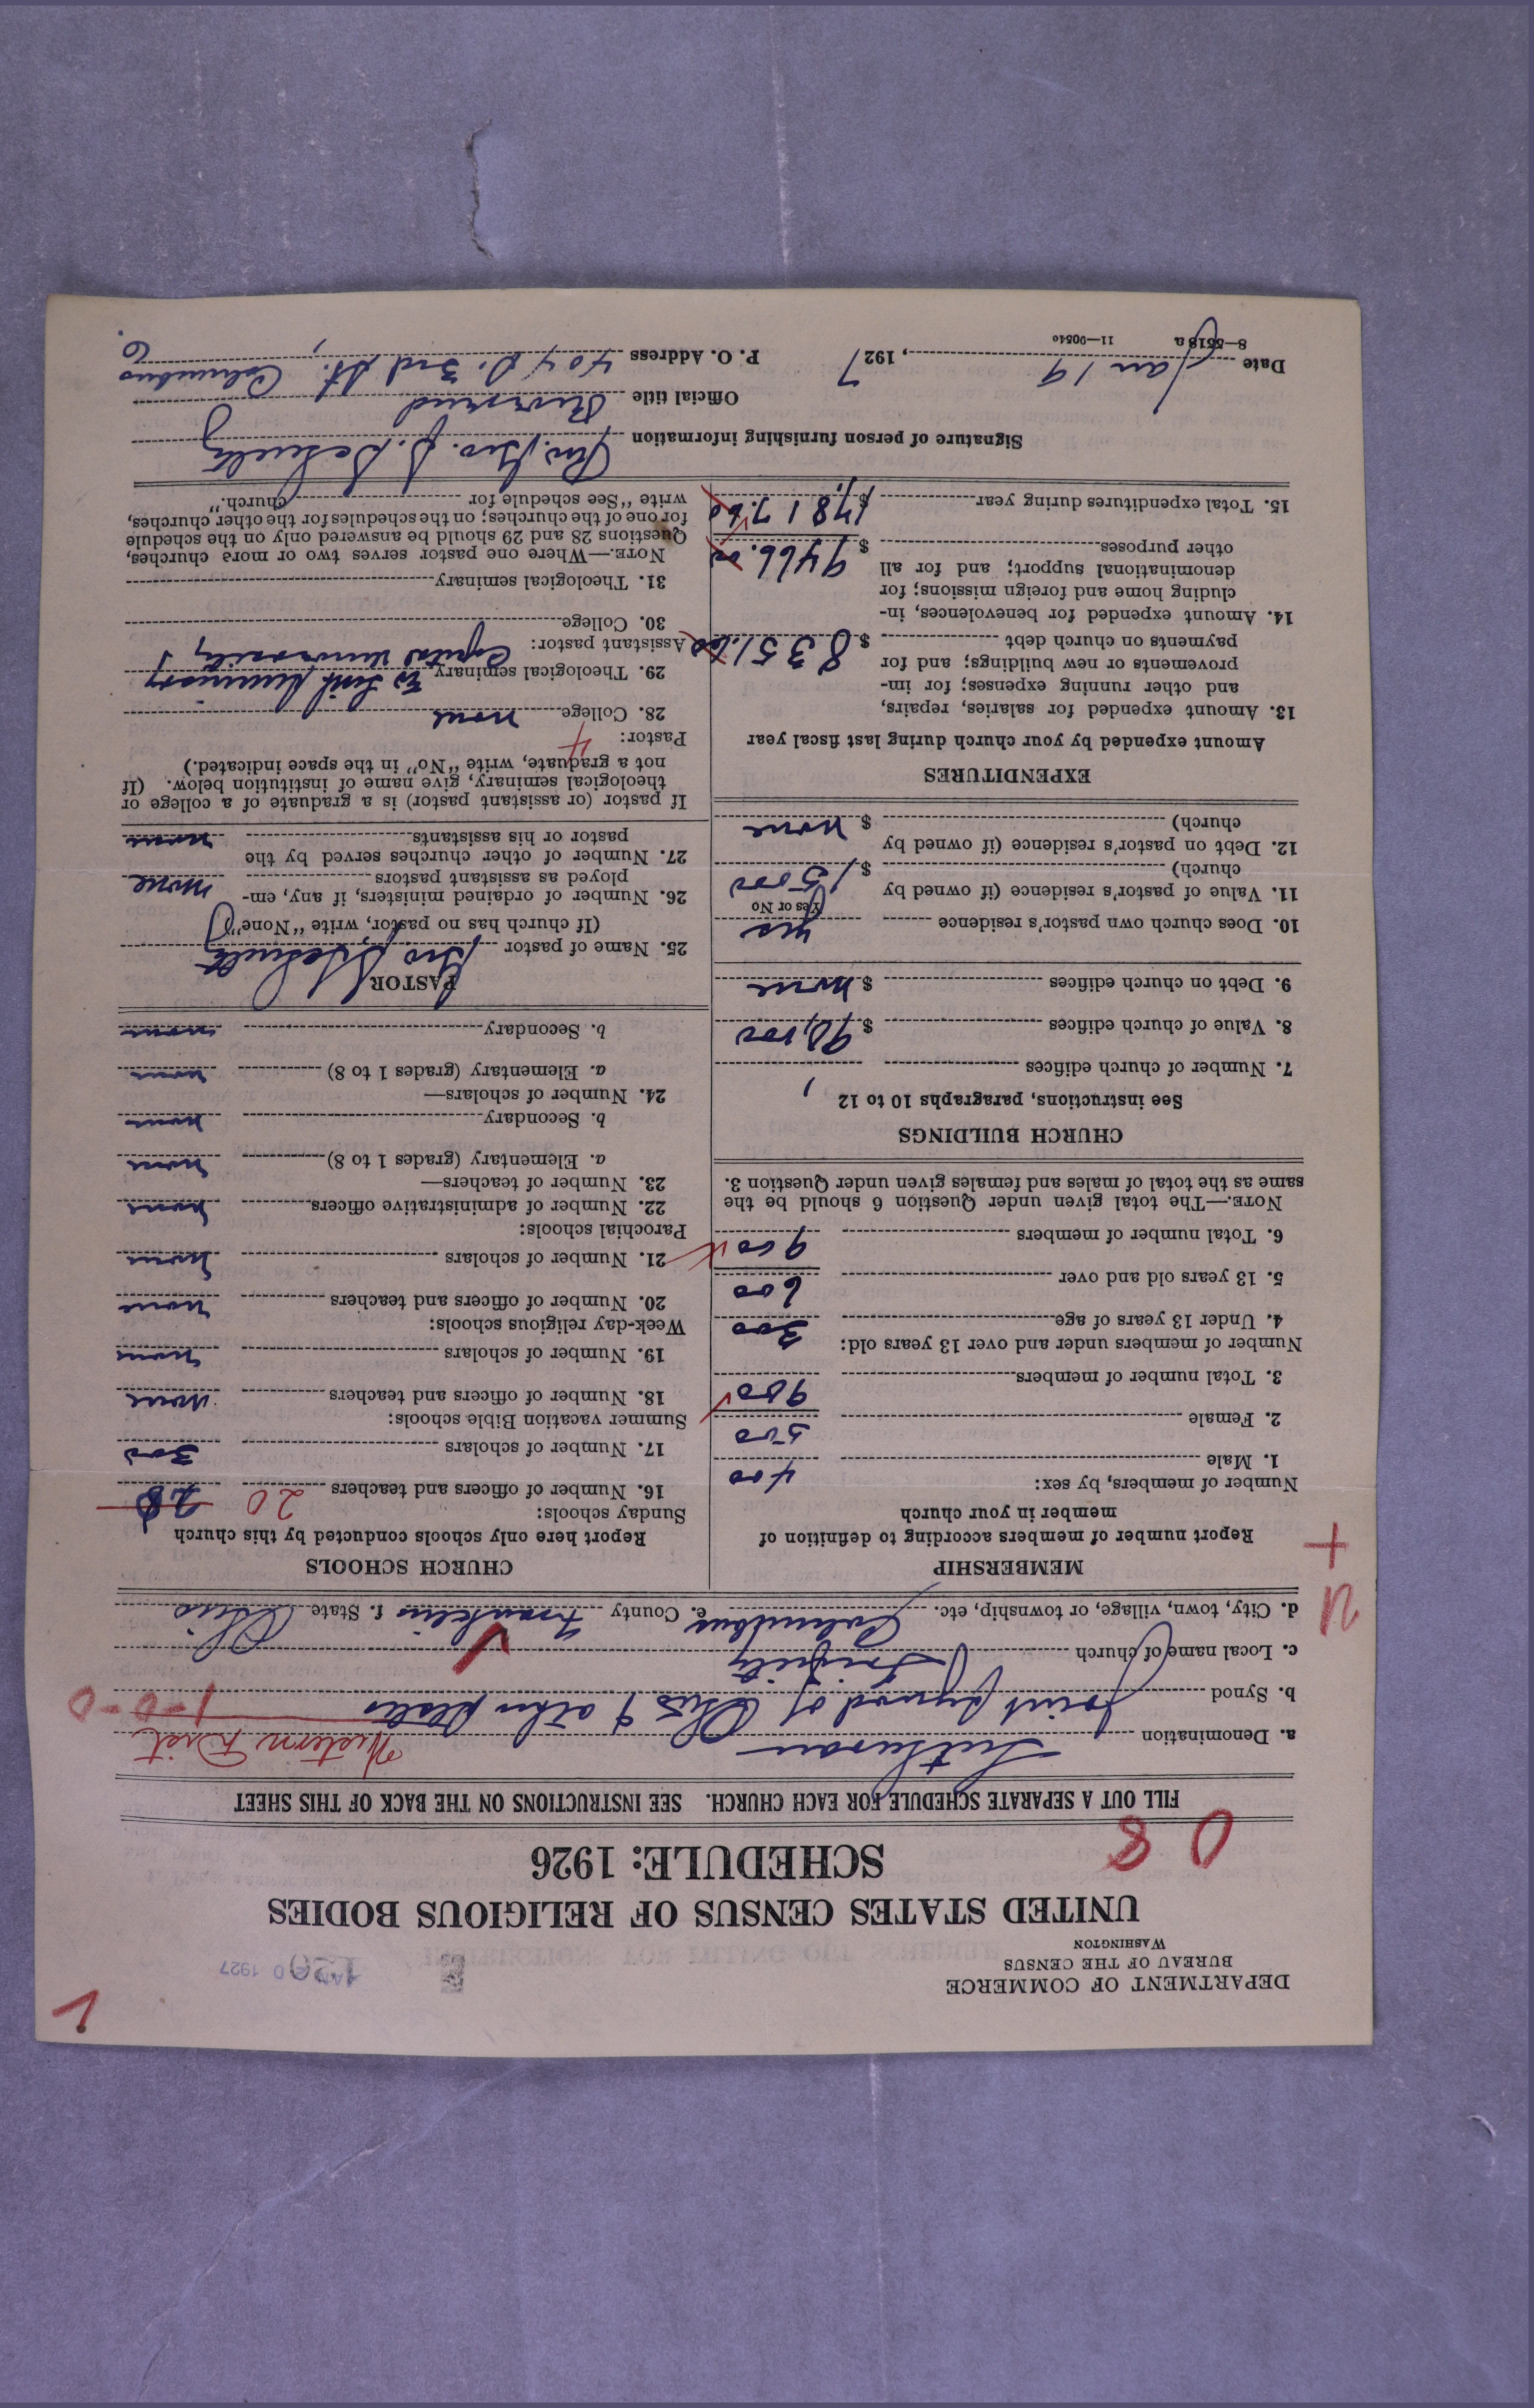 DEPARTMENT OF COMMERCE
BUREAU OF THE CENSUS
WASHINGTON
1927
UNITED STATES CENSUS OF RELIGIOUS BODIES
SCHEDULE: 1926
0 8
FILL OUT A SEPARATE SCHEDULE FOR EACH CHURCH. SEE INSTRUCTIONS ON THE BACK OF THIS SHEET
a. Denomination Lutheran Western Dist
b. Synod Joint Synod of Ohio & other States 1-0-0
c. Local name of church Trinity
d. City, town, village, or township, etc. Columbus e. County Franklin f. State Ohio
MEMBERSHIP
Report number of members according to definition of
member in your church
Number of members, by sex:
1. Male 400
2. Female 500
3. Total number of members 900
Number of members under and over 13 years old:
4. Under 13 years of age 300
5. 13 years old and over 600
6. Total number of members 900
NOTE.—The total given under Question 6 should be the
same as the total of males and females given under Question 3.
CHURCH BUILDINGS
See instructions, paragraphs 10 to 12
7. Number of church edifices 1
8. Value of church edifices $
9. Debt on church edifices $ none
10. Does church own pastor's residence yes
Yes or No
11. Value of pastor's residence (if owned by
church) $ 15000
12. Debt on pastor's residence (if owned by
church) $ none
EXPENDITURES
Amount expended by your church during last fiscal year
13. Amount expended for salaries, repairs,
and other running expenses; for im-
provements or new buildings; and for
payments on church debt $ 8351.60
14. Amount expended for benevolences, in-
cluding home and foreign missions; for
denominational support; and for all
other purposes $ 9466.00
15. Total expenditures during year $ 17,817.60
CHURCH SCHOOLS
Report here only schools conducted by this church
Sunday schools:
16. Number of officers and teachers 20 28
17. Number of scholars 300
Summer vacation Bible schools:
18. Number of officers and teachers none
19. Number of scholars none
Week-day religious schools:
20. Number of officers and teachers none
21. Number of scholars none
Parochial schools:
22. Number of administrative officers none
23. Number of teachers—
a. Elementary (grades 1 to 8) none
b. Secondary none
24. Number of scholars—
a. Elementary (grades 1 to 8) none
b. Secondary none
PASTOR
25. Name of pastor Geo J Schultz
(If church has no pastor, write "None")
26. Number of ordained ministers, if any, em-
ployed as assistant pastors none
27. Number of other churches served by the
pastor or his assistants none
If pastor (or assistant pastor) is a graduate of a college or
theological seminary, give name of institution below. (If
not a graduate, write "No" in the space indicated.)
Pastor: 4
28. College none
29. Theological seminary Ev Luth Seminary
Capital University
Assistant pastor:
30. College
31. Theological seminary
NOTE.—Where one pastor serves two or more churches,
Questions 28 and 29 should be answered only on the schedule
for one of the churches; on the schedules for the other churches,
write "See schedule for church."
Signature of person furnishing information Rev. Geo. J. Schultz
Official title
Date Jan 19, 1927 P. O. Address 404 S. 3rd St., Columbus O.
8—5518a 11—9054o